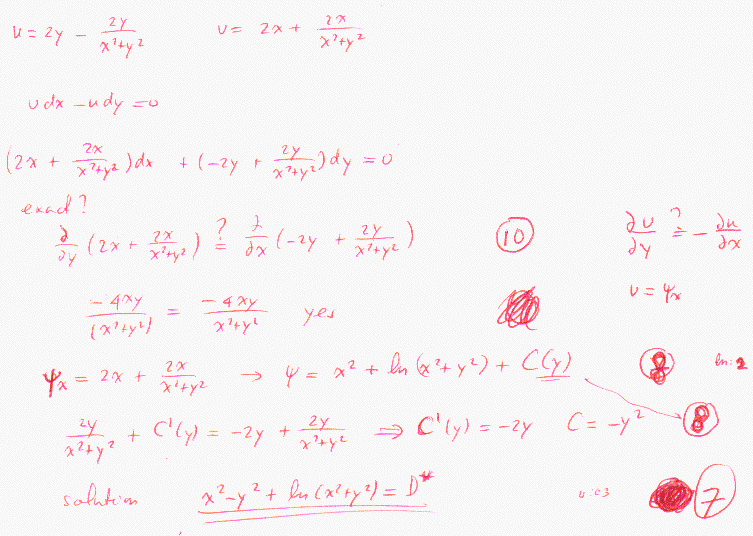 u = 2y - 2y/(x²+y²)    v = 2x + 2x/(x²+y²)
v dx - u dy = 0
(2x + 2x/(x²+y²)) dx + (-2y + 2y/(x²+y²)) dy = 0
exact?
∂/∂y (2x + 2x/(x²+y²)) ?= ∂/∂x (-2y + 2y/(x²+y²))    10    ∂v/∂y ?= - ∂u/∂x
-4xy/(x²+y²) = -4xy/(x²+y²)    yes    v = ψx
ψx = 2x + 2x/(x²+y²) → ψ = x² + ln (x²+y²) + C(y)    8    ln: 2
2y/(x²+y²) + C'(y) = -2y + 2y/(x²+y²) ⇒ C'(y) = -2y    C = -y²    8
solution    x² - y² + ln (x²+y²) = D    7